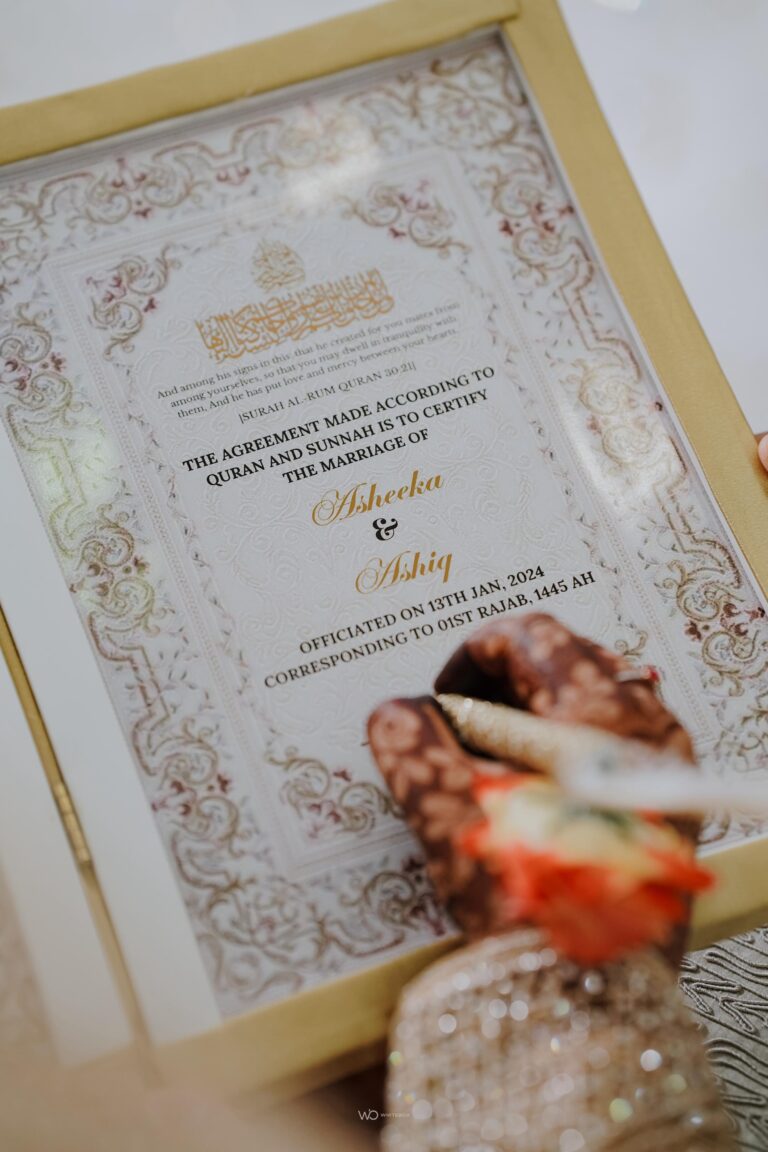 And among his signs in this that he created for you mates from
among yourselves, so that you may dwell in tranquility with
them, And he has put love and mercy between your hearts.
|SURAH AL-RUM QURAN 30:21|
THE AGREEMENT MADE ACCORDING TO
QURAN AND SUNNAH IS TO CERTIFY
THE MARRIAGE OF
Asheeka
&
Ashiq
OFFICIATED ON 13TH JAN, 2024
CORRESPONDING TO 01ST RAJAB, 1445 AH
WO